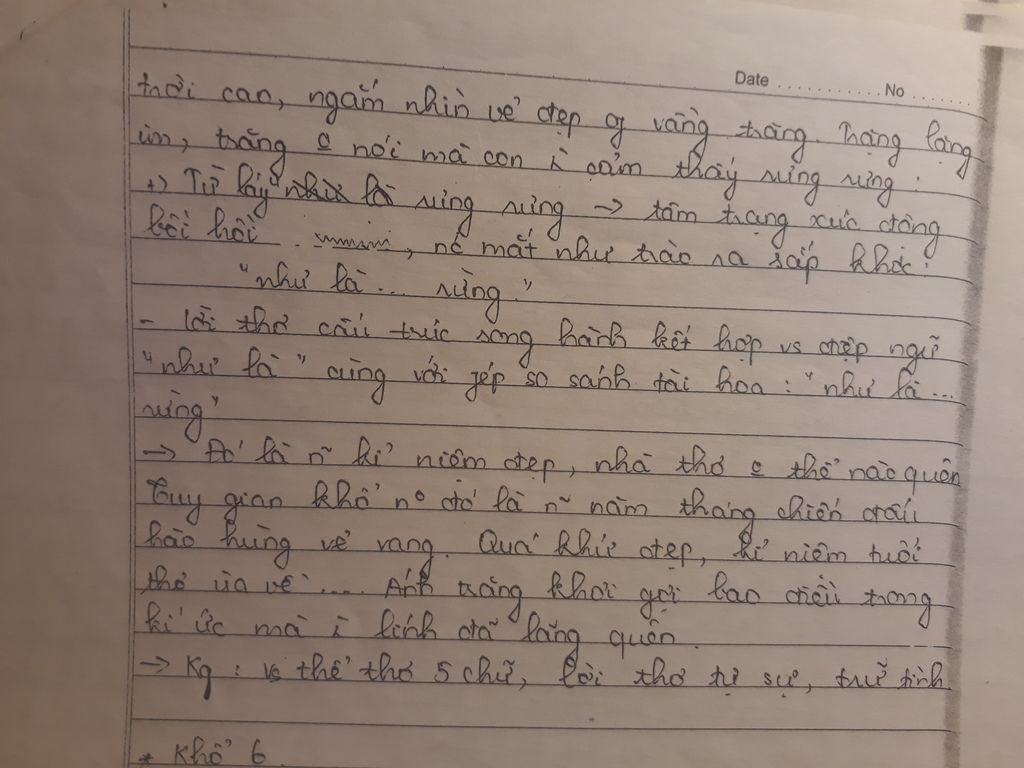 Date ........... No .......
trời cao, ngắm nhìn vẻ đẹp of vầng trăng. Trăng lặng
im, trăng c nói mà con i cảm thấy rưng rưng :
+) Từ láy " rưng rưng → tâm trạng xúc động
bồi hồi , nc mắt như trào ra sắp khóc :
"như là ... rừng."
- Lời thơ cấu trúc song hành kết hợp vs điệp ngữ
"như là" cùng với phép so sánh tài hoa : "như là ...
rừng"
→ Đó là n~ kỉ niệm đẹp, nhà thơ c thể nào quên
Tuy gian khổ no đó là n~ năm tháng chiến đấu
hào hùng vẻ vang. Quá khứ đẹp, kỉ niệm tuổi
thơ ùa về .... Ánh trăng khơi gợi bao điều trong
kí ức mà i lính đã lãng quên.
→ Kq : vs thể thơ 5 chữ, lời thơ tự sự, trữ tình
* Khổ 6